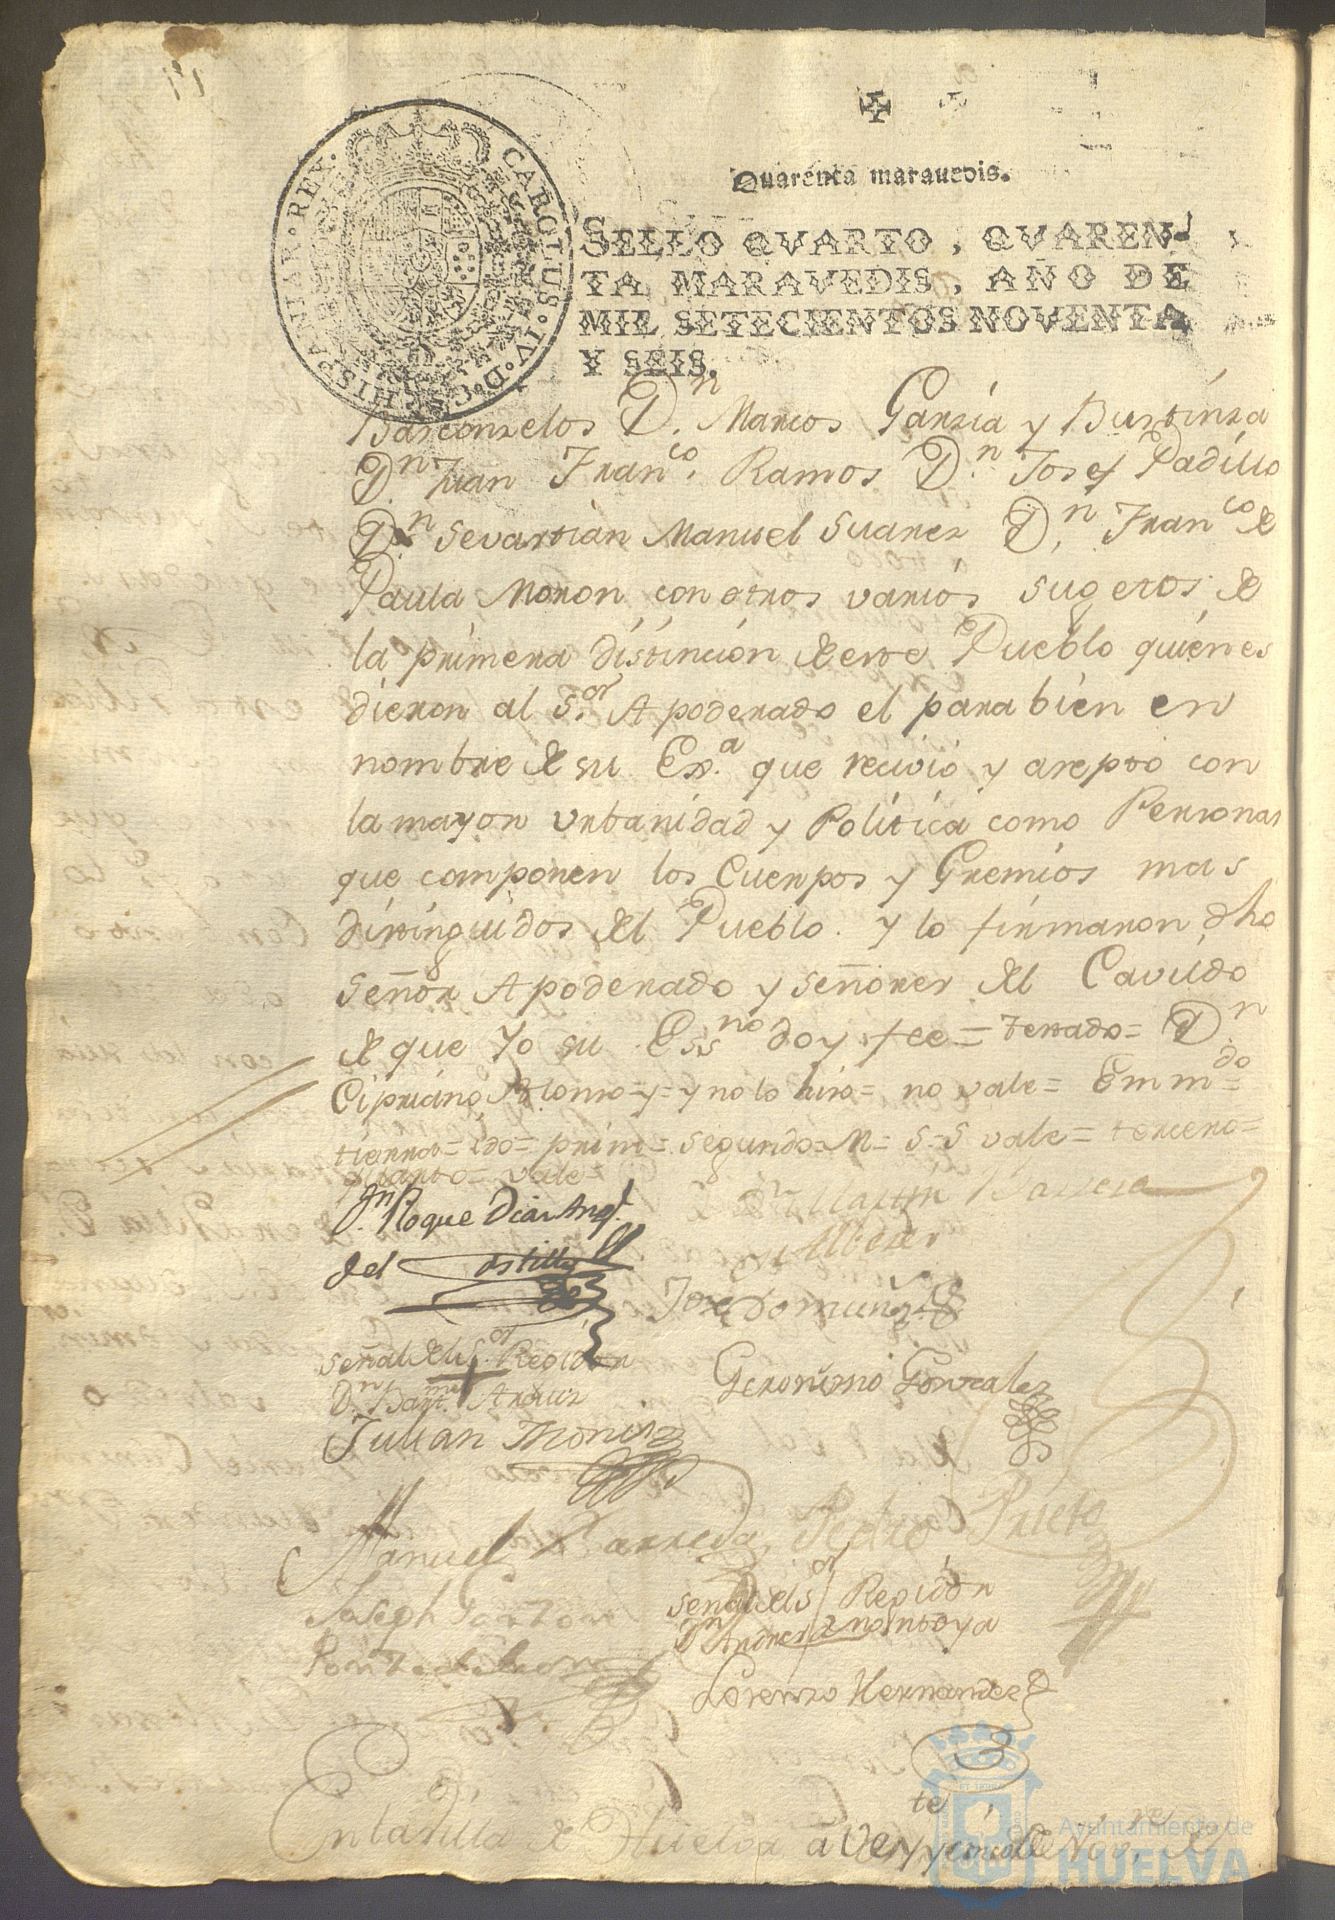 Quarenta marauedis.
SELLO QVARTO, QVAREN-
TA MARAVEDIS, AÑO DE
MIL SETECIENTOS NOVENTA
Y SEIS.
CAROLUS·IV·D·G·HISPANIAR·REX·
Barconzelos D.n Marcos Garzia y Burtinza
D.n Juan Fran.co Ramos D.n Josef Padillo
D.n Sevastian Manuel Suarez D.n Fran.co de
Paula Moron con otros varios sugetos de
la primera distincion de este Pueblo quienes
dieron al S.or Apoderado el parabien en
nombre de su Ex.a que recivio y azepto con
la mayor urbanidad y Politica como Personas
que componen los Cuerpos y Gremios mas
distinguidos del Pueblo. y lo firmaron dho
señor Apoderado y señores del Cavildo
de que Yo su Ess.no doy fee = Testado = D.n
Cipriano Alonso = y = y no lo hizo = no vale = Emm.do
tierras = ido = prim = segundo = N = S = S vale = tercero =
quarto = vale =
Jn Roque Diaz Ang.l
del Castillo
Joachin Barrera
Alberes
Jose Domuñoz
señal del S.or Regidor
D.n Bart.me Arduz
Geronimo Gonzalez
Julian Thoniz
Manuel Barreda
Pedro Prieto
Joseph Garzon
señal del S.or Regidor
D.n Andres de Montoya
Ponze de Leon
Lorenzo Hernandez
En la Villa de Huelva à Veynte y cinco de Nov.re de
Ayuntamiento de
HUELVA